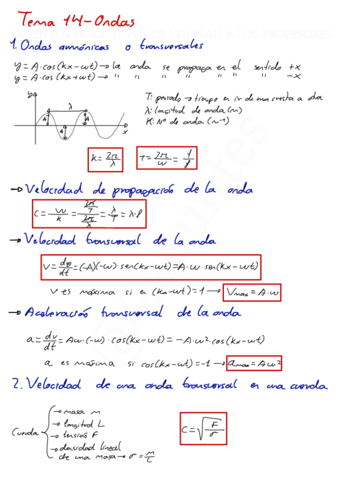 Tema 14-Ondas
1. Ondas armónicas o transversales
y = A·cos(kx-wt) → la onda se propaga en el sentido +x
y = A·cos(kx+wt) → " " " " " " -x
T: periodo → tiempo en ir de una cresta a otra
λ: longitud de onda (m)
K: Nº de onda (m⁻¹)
y
λ
A
x
K = 2π/λ
T = 2π/w = 1/f
→ Velocidad de propagación de la onda
C = w/k = (2π/T)/(2π/λ) = λ/T = λ·f
→ Velocidad transversal de la onda
V = dy/dt = (-A)(-w)·sen(kx-wt) = A·w·sen(kx-wt)
V es máxima si sen (kx-wt) = 1 → Vmax = A·w
→ Aceleración transversal de la onda
a = dv/dt = Aw·(-w)·cos(kx-wt) = -A·w²·cos(kx-wt)
a es máxima si cos(kx-wt) = -1 → amax = Aw²
2. Velocidad de una onda transversal en una cuerda
Cuerda
→ masa m
→ longitud L
→ tensión F
→ densidad lineal
de una masa → σ = m/L
C = √(F/σ)